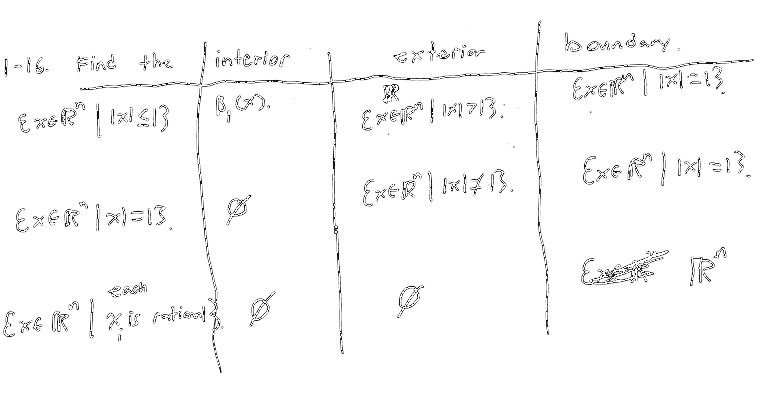 1-16. Find the interior exterior boundary.
{x∈ℝⁿ | |x|≤1}. B₁(x). {x∈ℝⁿ | |x|>1}. {x∈ℝⁿ | |x|=1}.
{x∈ℝⁿ | |x|=1}. ∅ {x∈ℝⁿ | |x|≠1}. {x∈ℝⁿ | |x|=1}.
{x∈ℝⁿ | each xᵢ is rational}. ∅ ∅ ℝⁿ